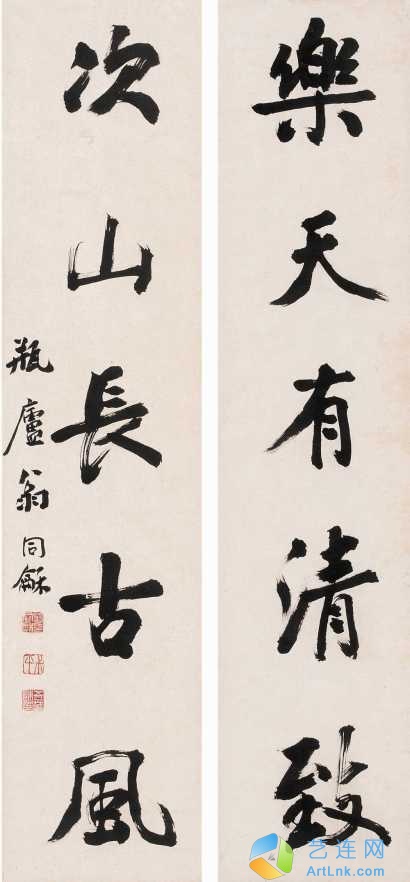 樂天有清致
次山長古風
瓶廬翁同龢
艺连网
ArtLnk.com